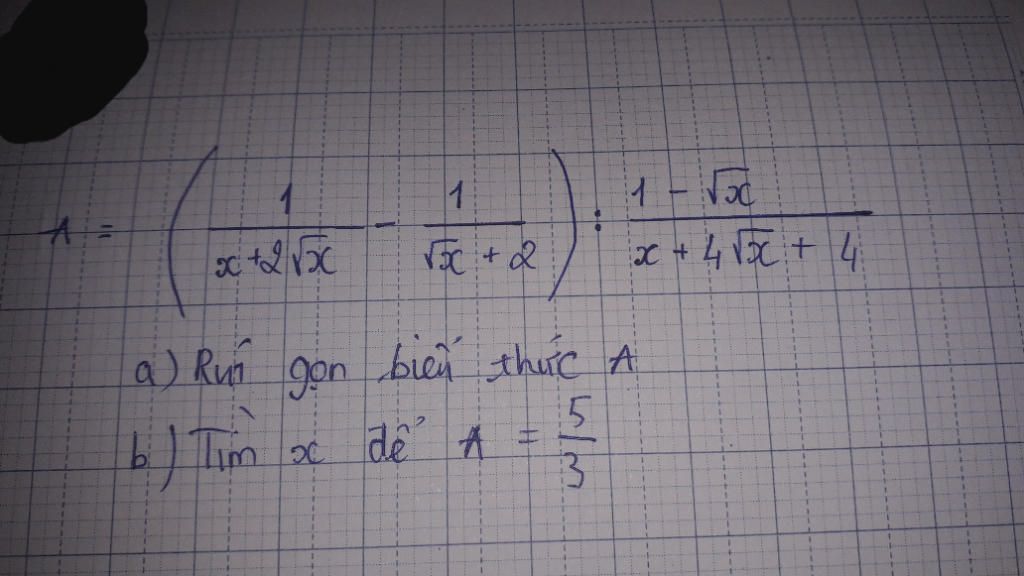 A = ( 1 / (x + 2√x) - 1 / (√x + 2) ) : (1 - √x) / (x + 4√x + 4)
a) Rút gọn biểu thức A
b) Tìm x để A = 5/3